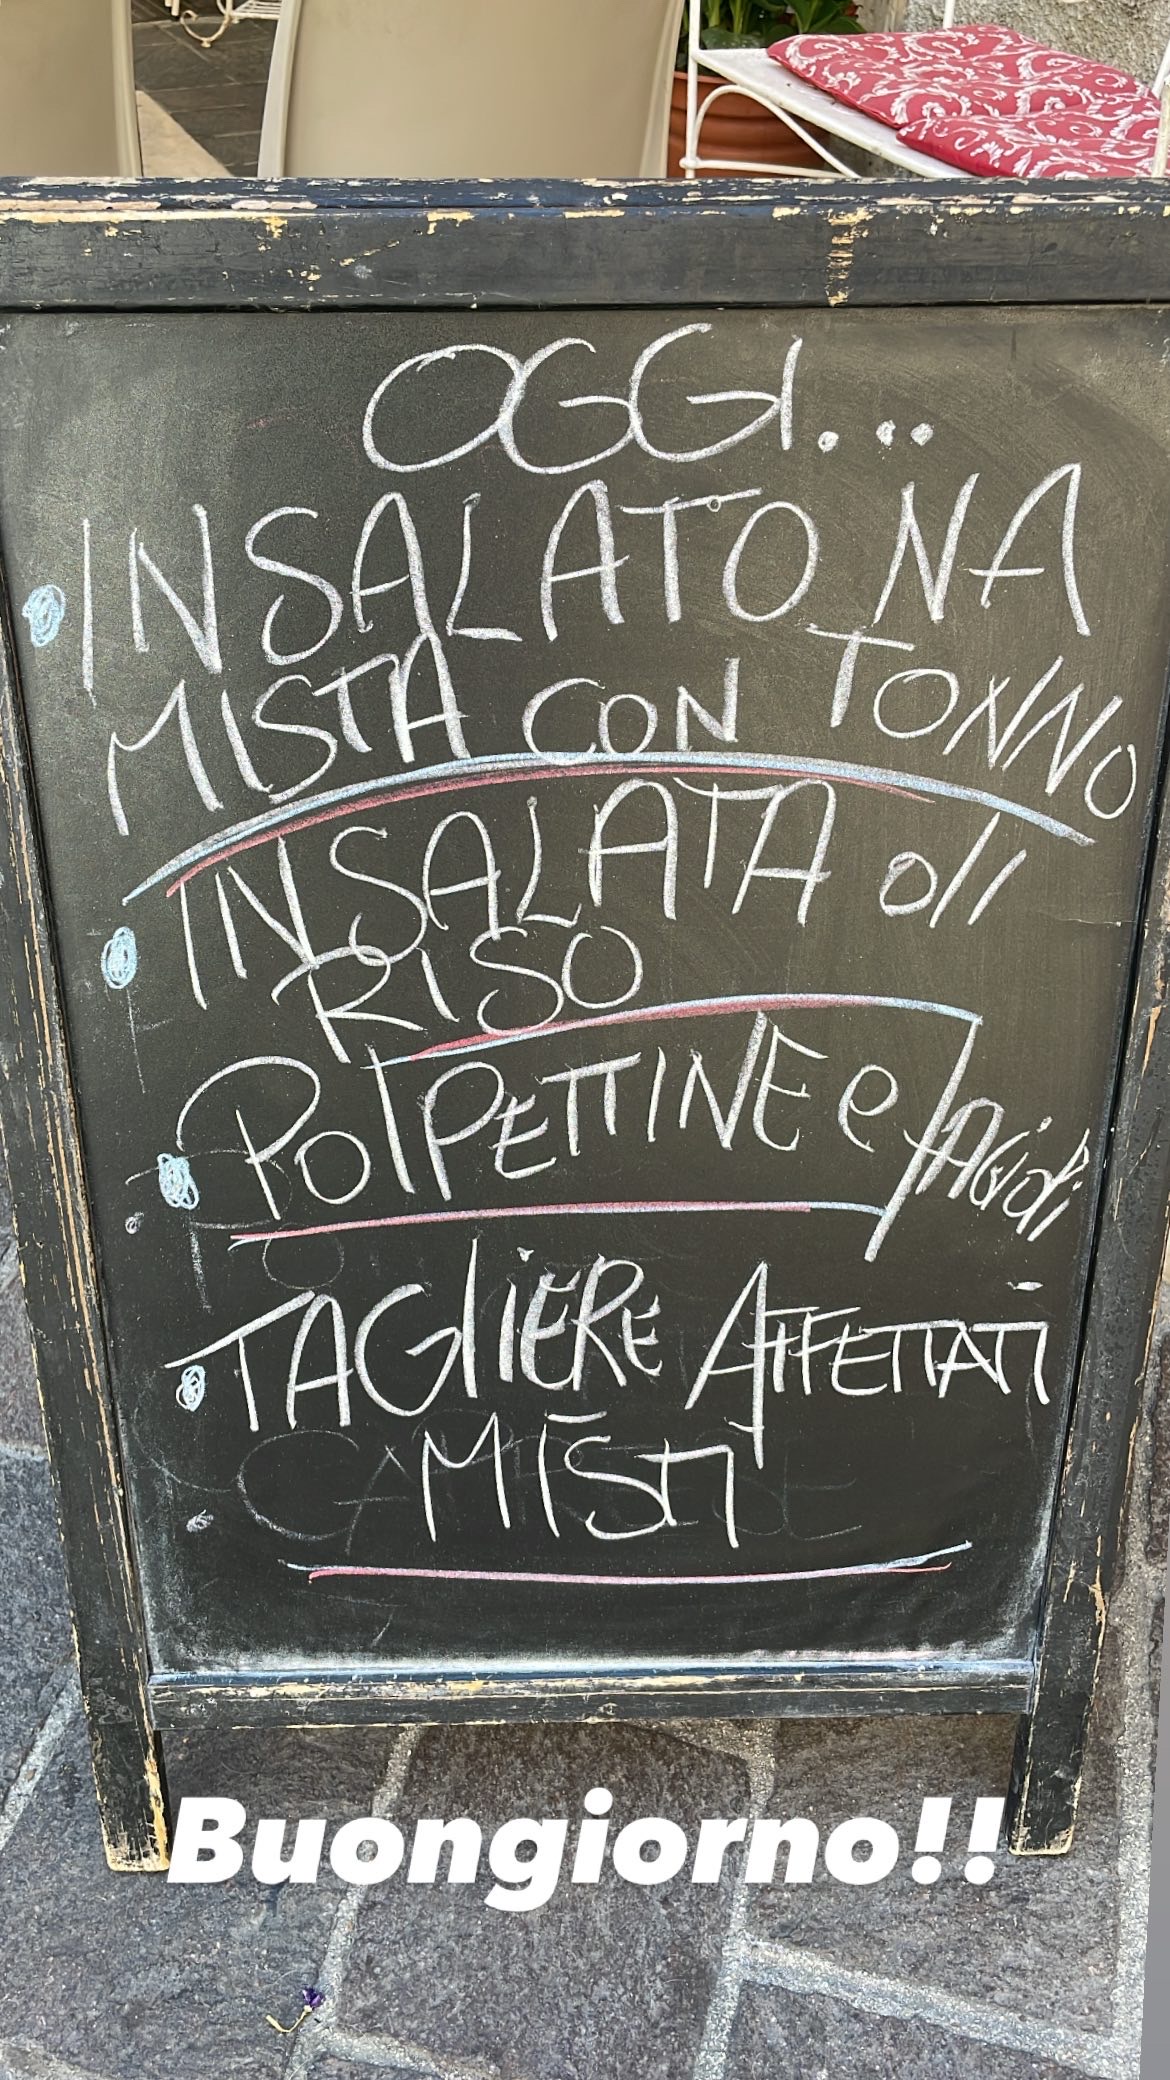 OGGI...
INSALATONA
MISTA CON TONNO
INSALATA DI
RISO
POLPETTINE e fAGioli
TAGLIERE AFFETTATI
MISTI
Buongiorno!!